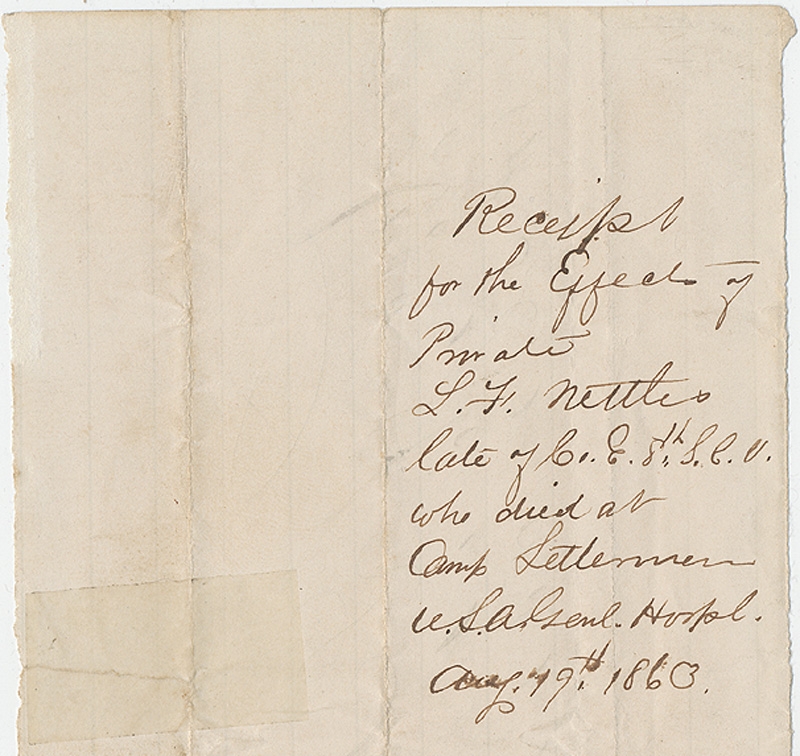 Receipt
for the Effects of
Private
L. F. Nettles
late of Co. E. 8th S. C. V.
who died at
Camp Letterman
U.S.A. Genl. Hospl.
Aug. 19th 1863.